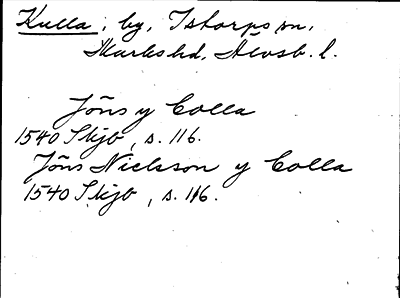 Kulla, by, Istorps sn,
Marks hd, Älvsb. l.
Jöns y Colla
1540 Skjb, s. 116.
Jöns Nielsson y Colla
1540 Skjb, s. 116.